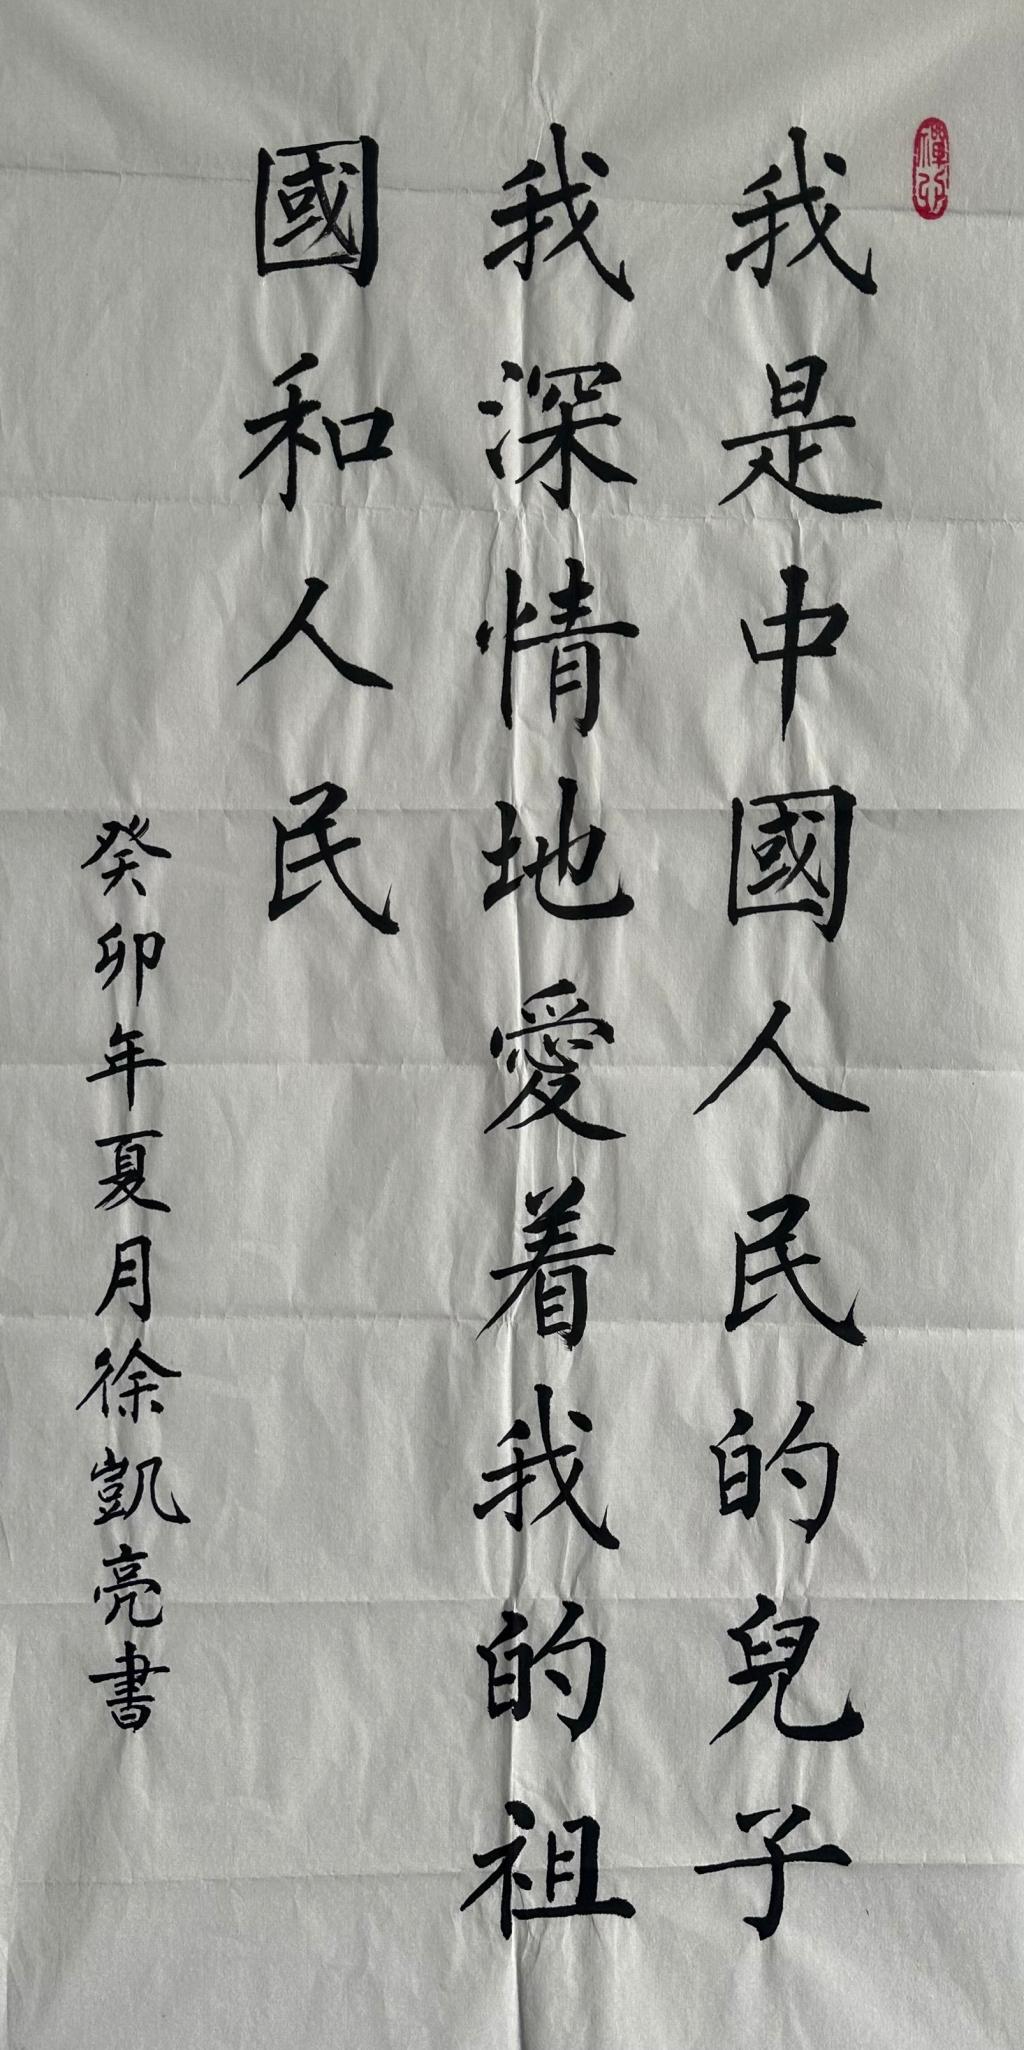 禪心
我是中國人民的兒子
我深情地愛着我的祖
國和人民
癸卯年夏月徐凱亮書